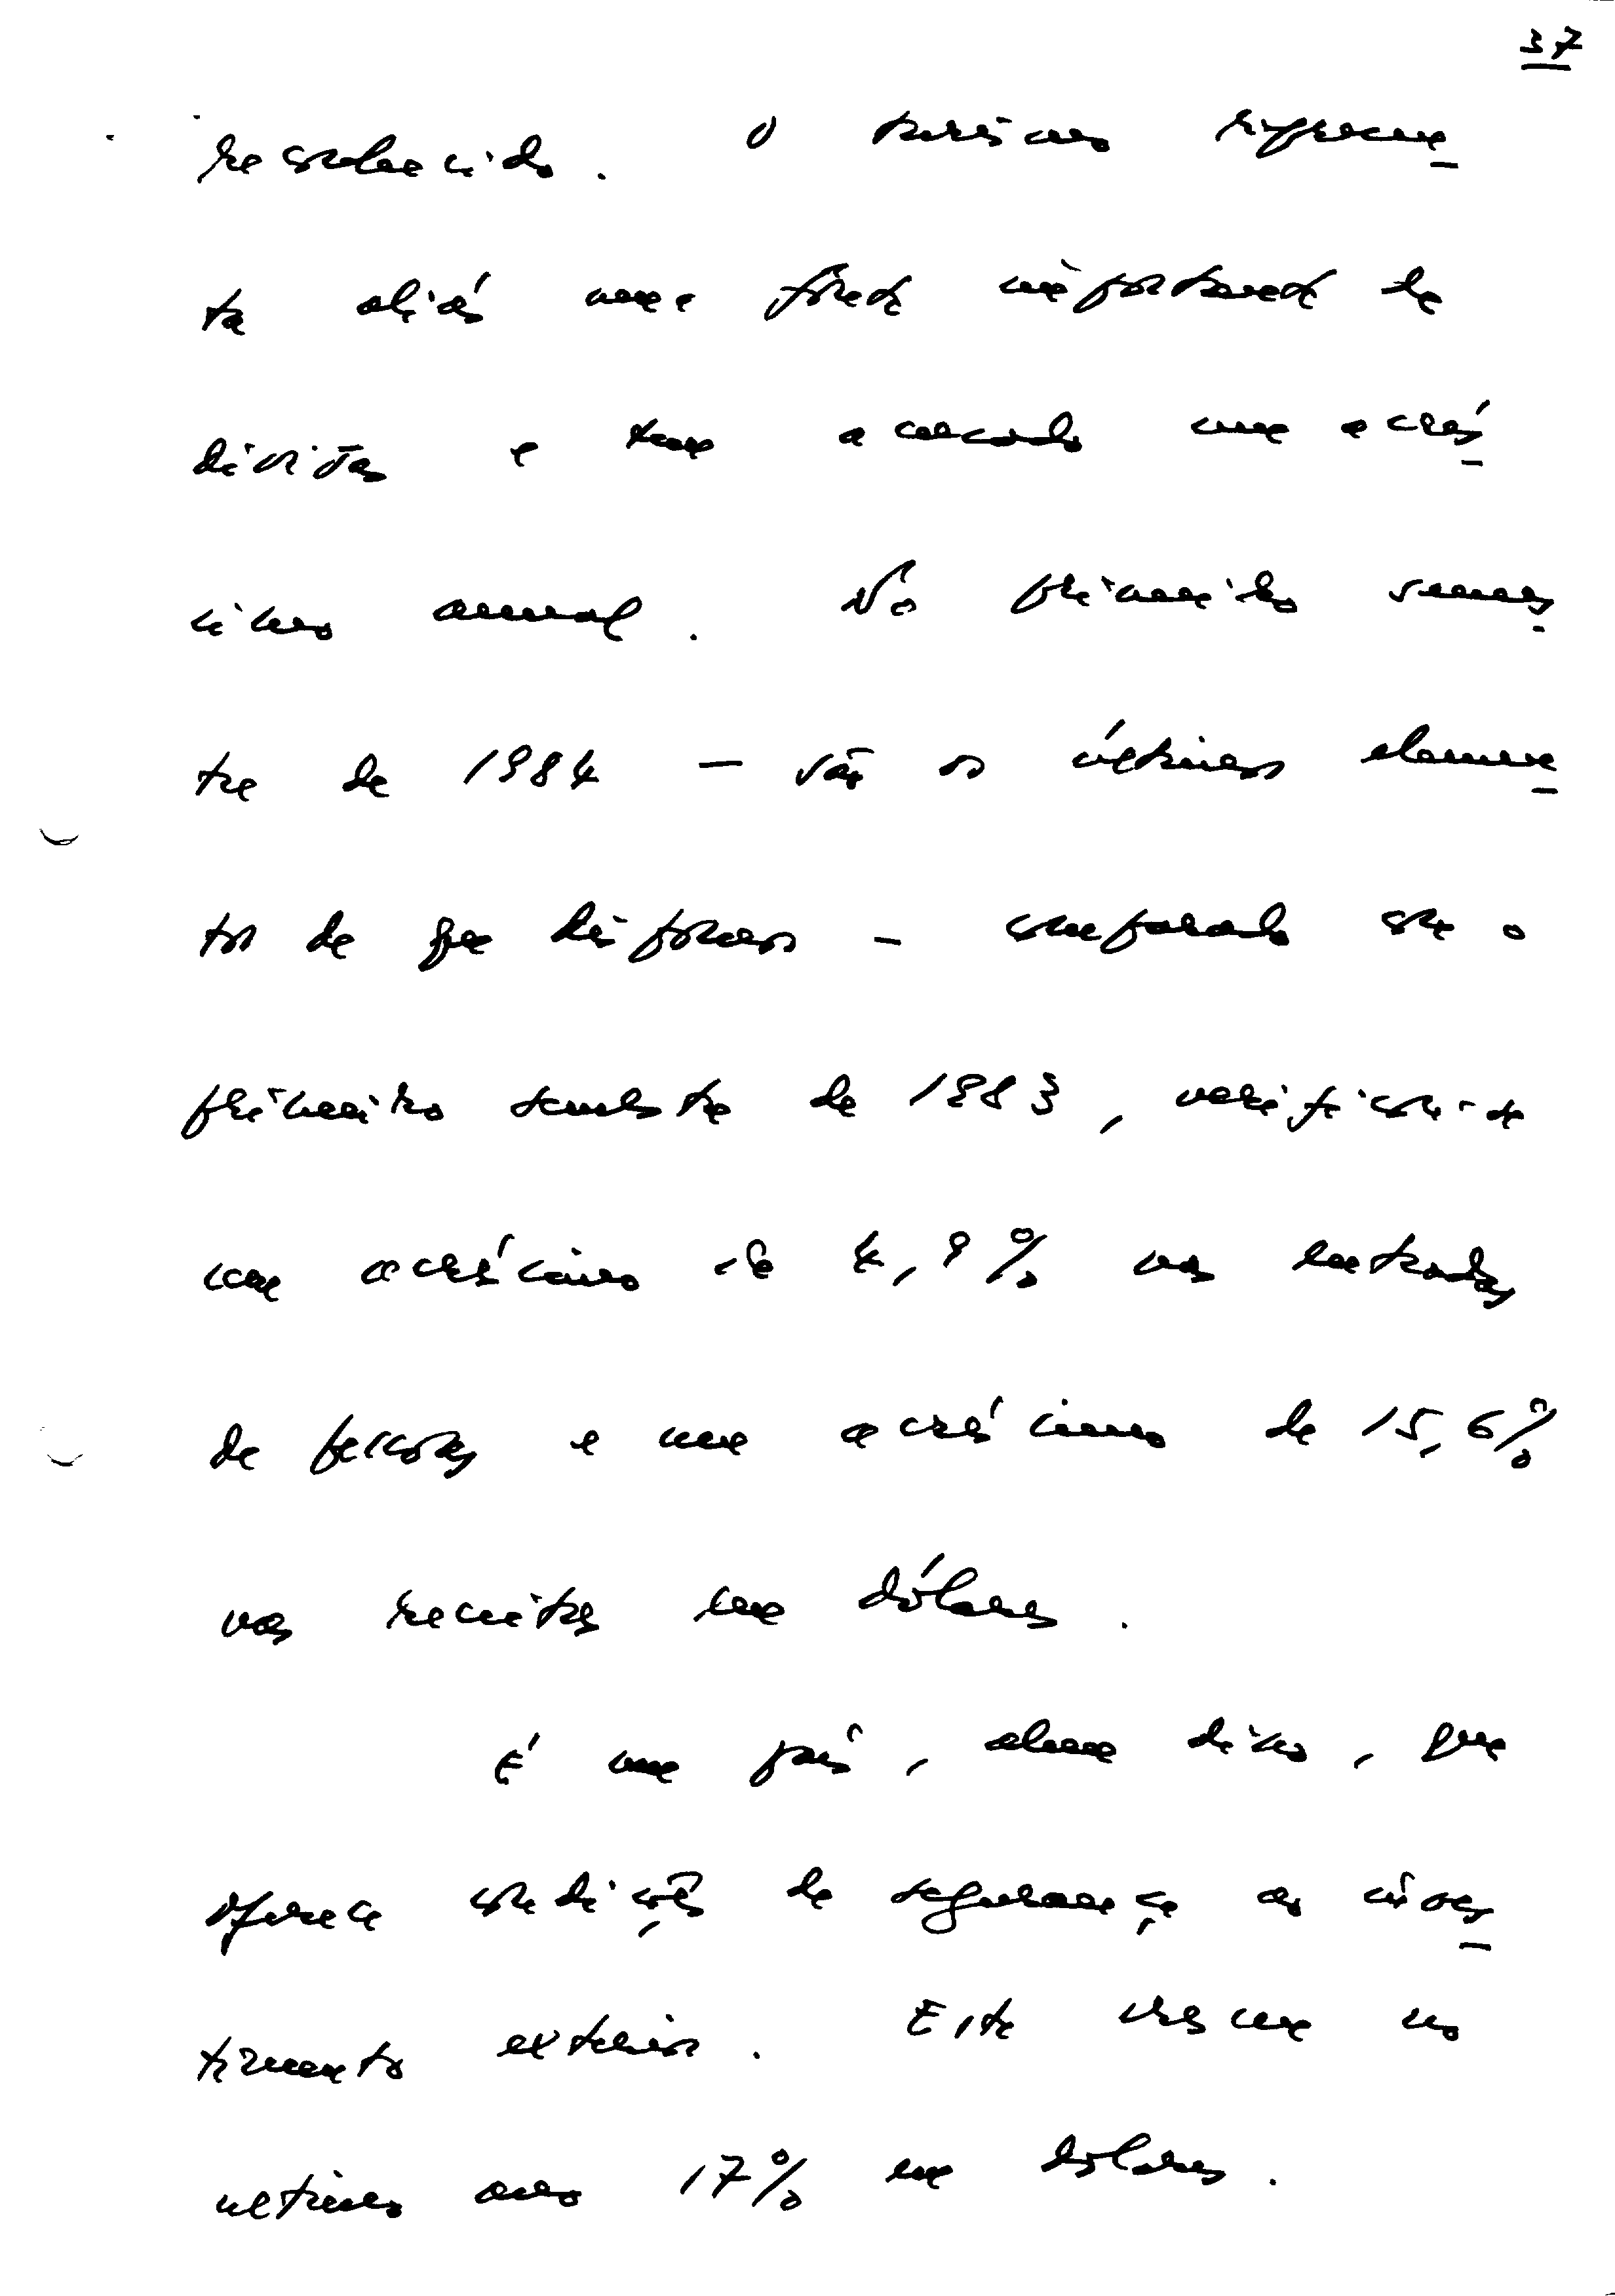 37
restabelecido. O turismo represen
ta aliás uma fonte importante de
divisas e tem acusado um acrés
cimo anual. No primeiro semes
tre de 1984 — são os últimos elemen
tos de que dispomos - comparado com o
primeiro semestre de 1983, verificou-se
um acréscimo de 4,9% nas entradas
de pessoas e um acréscimo de 15,6%
nas receitas em dólares.
É um país, além disso, que
oferece condições de segurança ao inves
timento exterior. Este cresceu no
último ano 17% em dólares.